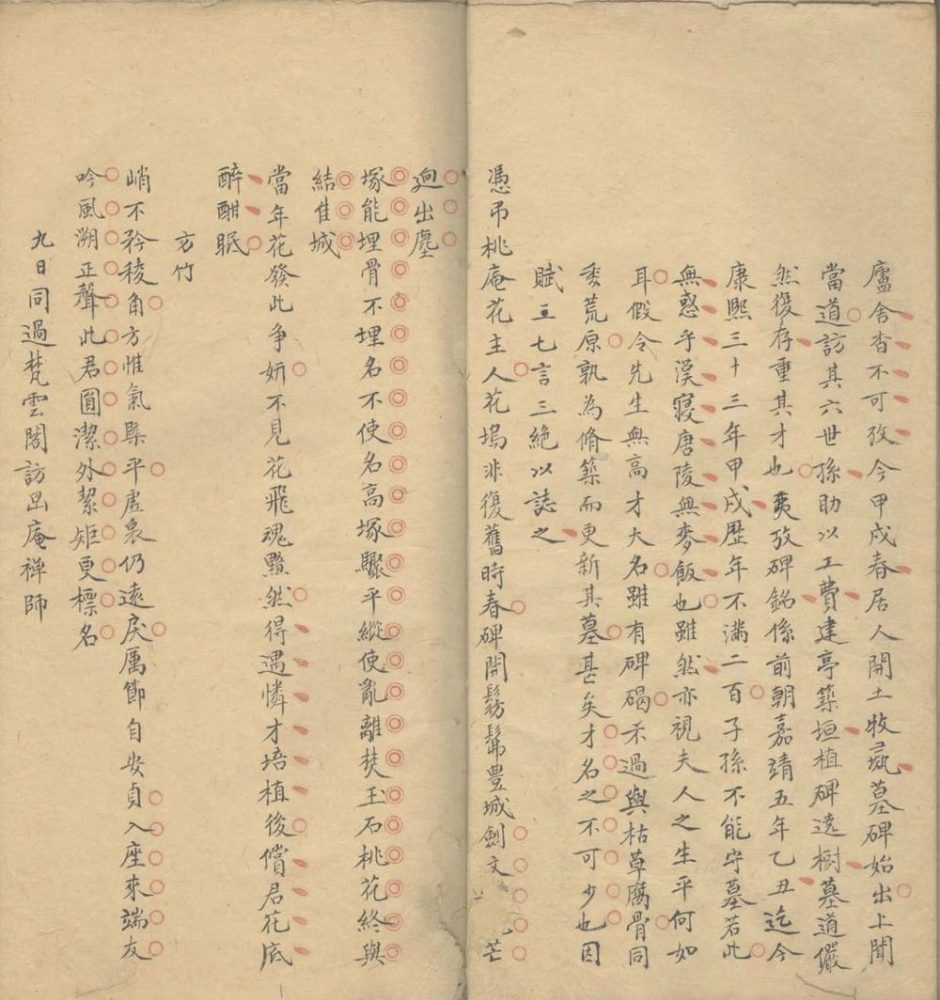 廬舍杳不可攷今甲戌春居人開土牧甎墓碑始出上聞
當道訪其六世孫助以工費建亭築垣植碑遶樹墓道儼
然復存重其才也夷攷碑銘係前朝嘉靖五年乙丑迄今
康熙三十三年甲戌歷年不滿二百子孫不能守墓若此
無惑乎漢寢唐陵無麥飯也雖然亦視夫人之生平何如
耳假令先生無高才大名雖有碑碣不過與枯草腐骨同
委荒原孰為脩築而更新其墓甚矣才名之不可少也因
賦三七言三絕以誌之
憑弔桃庵花主人花塢非復舊時春碑開髣髴豐城劍文 芒
迥出塵
塚能埋骨不埋名不使名高塚驟平縱使亂離焚玉石桃花終與
結佳城
當年花發此争妍不見花飛魂黯然得遇憐才培植後儻君花底
醉酣眠
方竹
峭不矜稜角方惟氣槩平虛衷仍遠戾厲節自安貞入座來端友
吟風溯正聲此君圓潔外絜矩更標名
九日同過梵雲閣訪 庵禅師